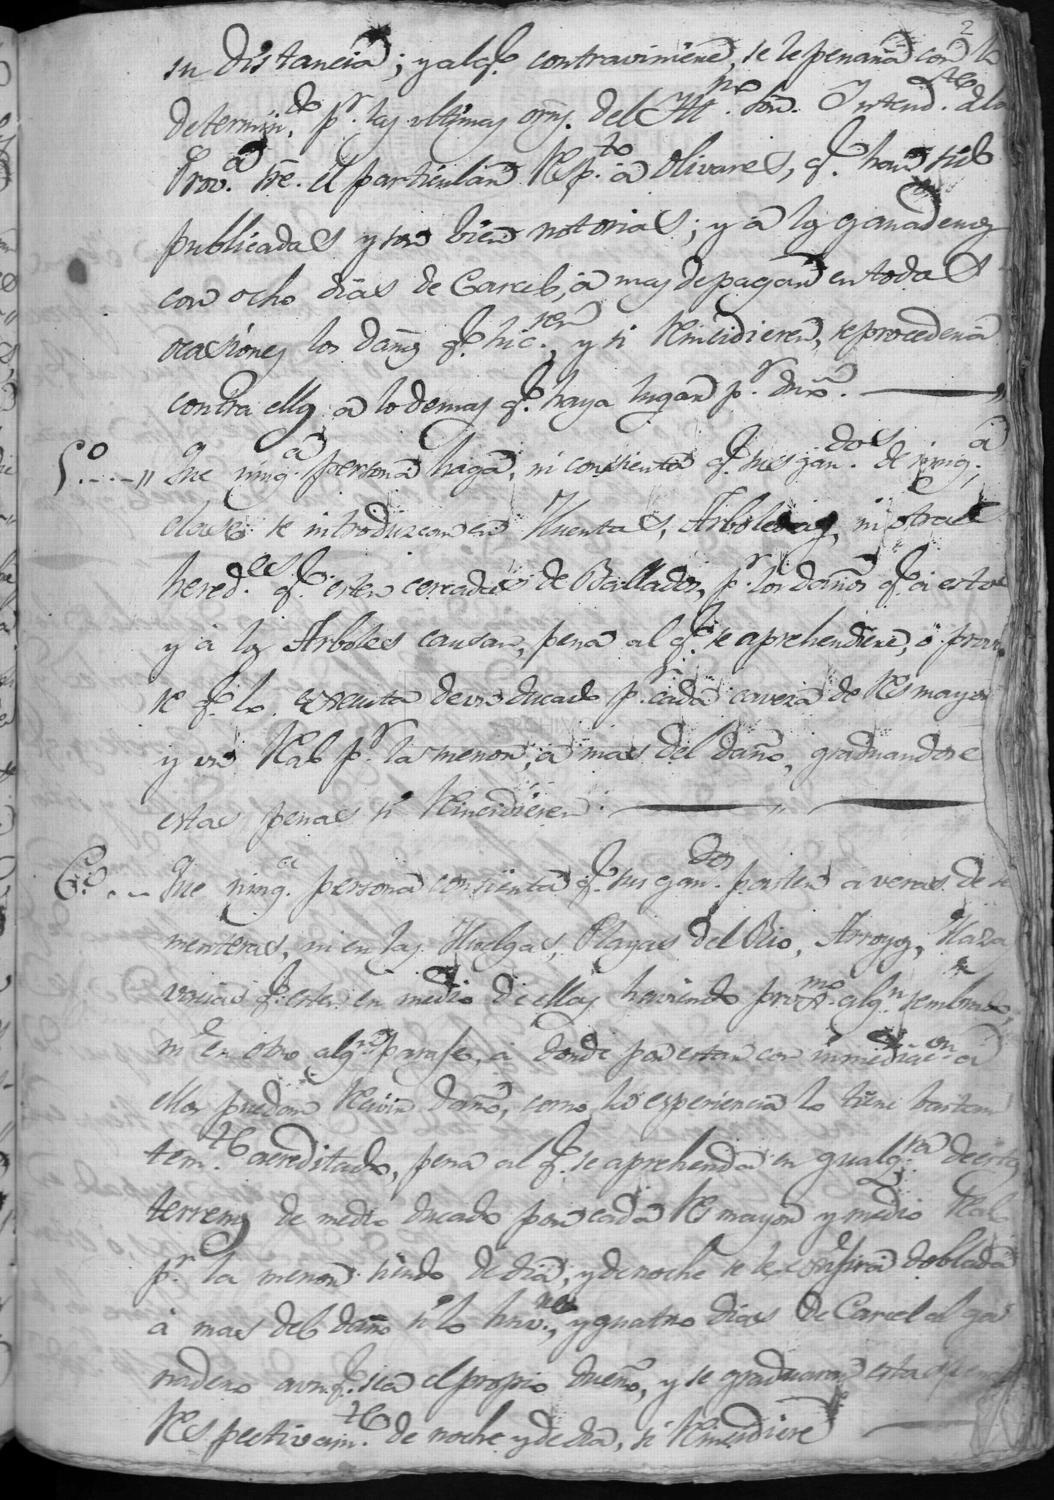 2
su distancia; y al q.e contraviniere, se le penará con lo
determin.do p.r las ultimas orns. del Ill.mo Sōr. Intend.te de la
Prov.a sre. el particular Resp.to a Olivares, q.e han sido
publicadas y son bien notorias; y a los ganaderos
con ocho dias de Carcel, a mas de pagar en todas
ocasiones los daños q.e hic.sen y si Reincidieren, se procederá
contra ellos a lo demas q.e haya lugar p.r dro.
5.o Que ning.a persona haga, ni consienta q.e sus gan.dos de ning.a
clase se introduzcan en Huertas, Arboledas, ni otras
hered.es q.e esten cercadas de Ballados, p.r los daños q.e a estos
y a los Arboles causan, pena al q.e se aprehendiere, o
se q.e lo executa de un ducado p.r cada caveza de Res mayor
y un Real p.r la menor, a mas del daño, graduandose
estas penas si Reincidieren.
6.o Que ning.a persona consienta q.e sus gan.dos pasten a veras de se
menteras, ni en las Huelgas, Playas del Rio, Arroyos, Haza
vacias q.e esten en medio de ellas haviendo prox.mo alg.n sembrado,
ni en otro alg.no parage, a donde por estar con inmediac.on a
ellos puedan Recivir daño, como la experiencia lo tiene bastan
tem.te acreditado, pena al q.e se aprehenda en qualq.ra de estos
terrenos de medio ducado por cada Res mayor y medio Real
p.r la menor siendo de dia, y de noche se le exigirá doblada
à mas del daño si lo huv.re, y quatro dias de Carcel al ga
nadero aunq.e sea el propio dueño, y se graduaran estas penas
Respectivam.te de noche y de dia, si Reincidiere